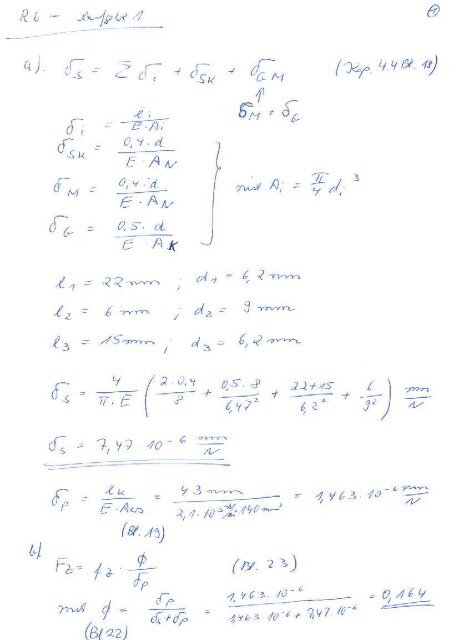 Rb - Aufgabe 1
①
a). δs = Σ δi + δSK + δGM (Kap. 4.4 Bl. 18)
↑
δM + δG
δi = li / E·Ai
δSK = 0,4·d / E·AN
δM = 0,4·d / E·AN
δG = 0,5·d / E·AK
mit Ai = π/4 di³
l1 = 22mm ; d1 = 6,2mm
l2 = 6mm ; d2 = 9mm
l3 = 15mm ; d3 = 6,2mm
δs = 4/π·E (2·0,4/8 + 0,5·8/6,47² + 22+15/6,2² + 6/9²) mm/N
δs = 7,47 10⁻⁶ mm/N
δp = lk / E·Aers = 43mm / 2,1·10⁵ N/mm² 140mm² = 1,463·10⁻⁶ mm/N
(Bl. 19)
b)
Fz = fz · ϕ/δp (Bl. 23)
mit ϕ = δp / δs+δp = 1,463·10⁻⁶ / 1,463·10⁻⁶ + 7,47·10⁻⁶ = 0,164
(Bl 22)